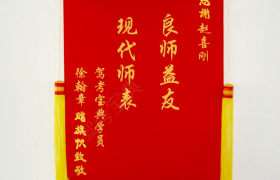 感谢赵喜刚
良师益友
现代师表
驾考宝典学员
徐翰章赠旗帜致敬